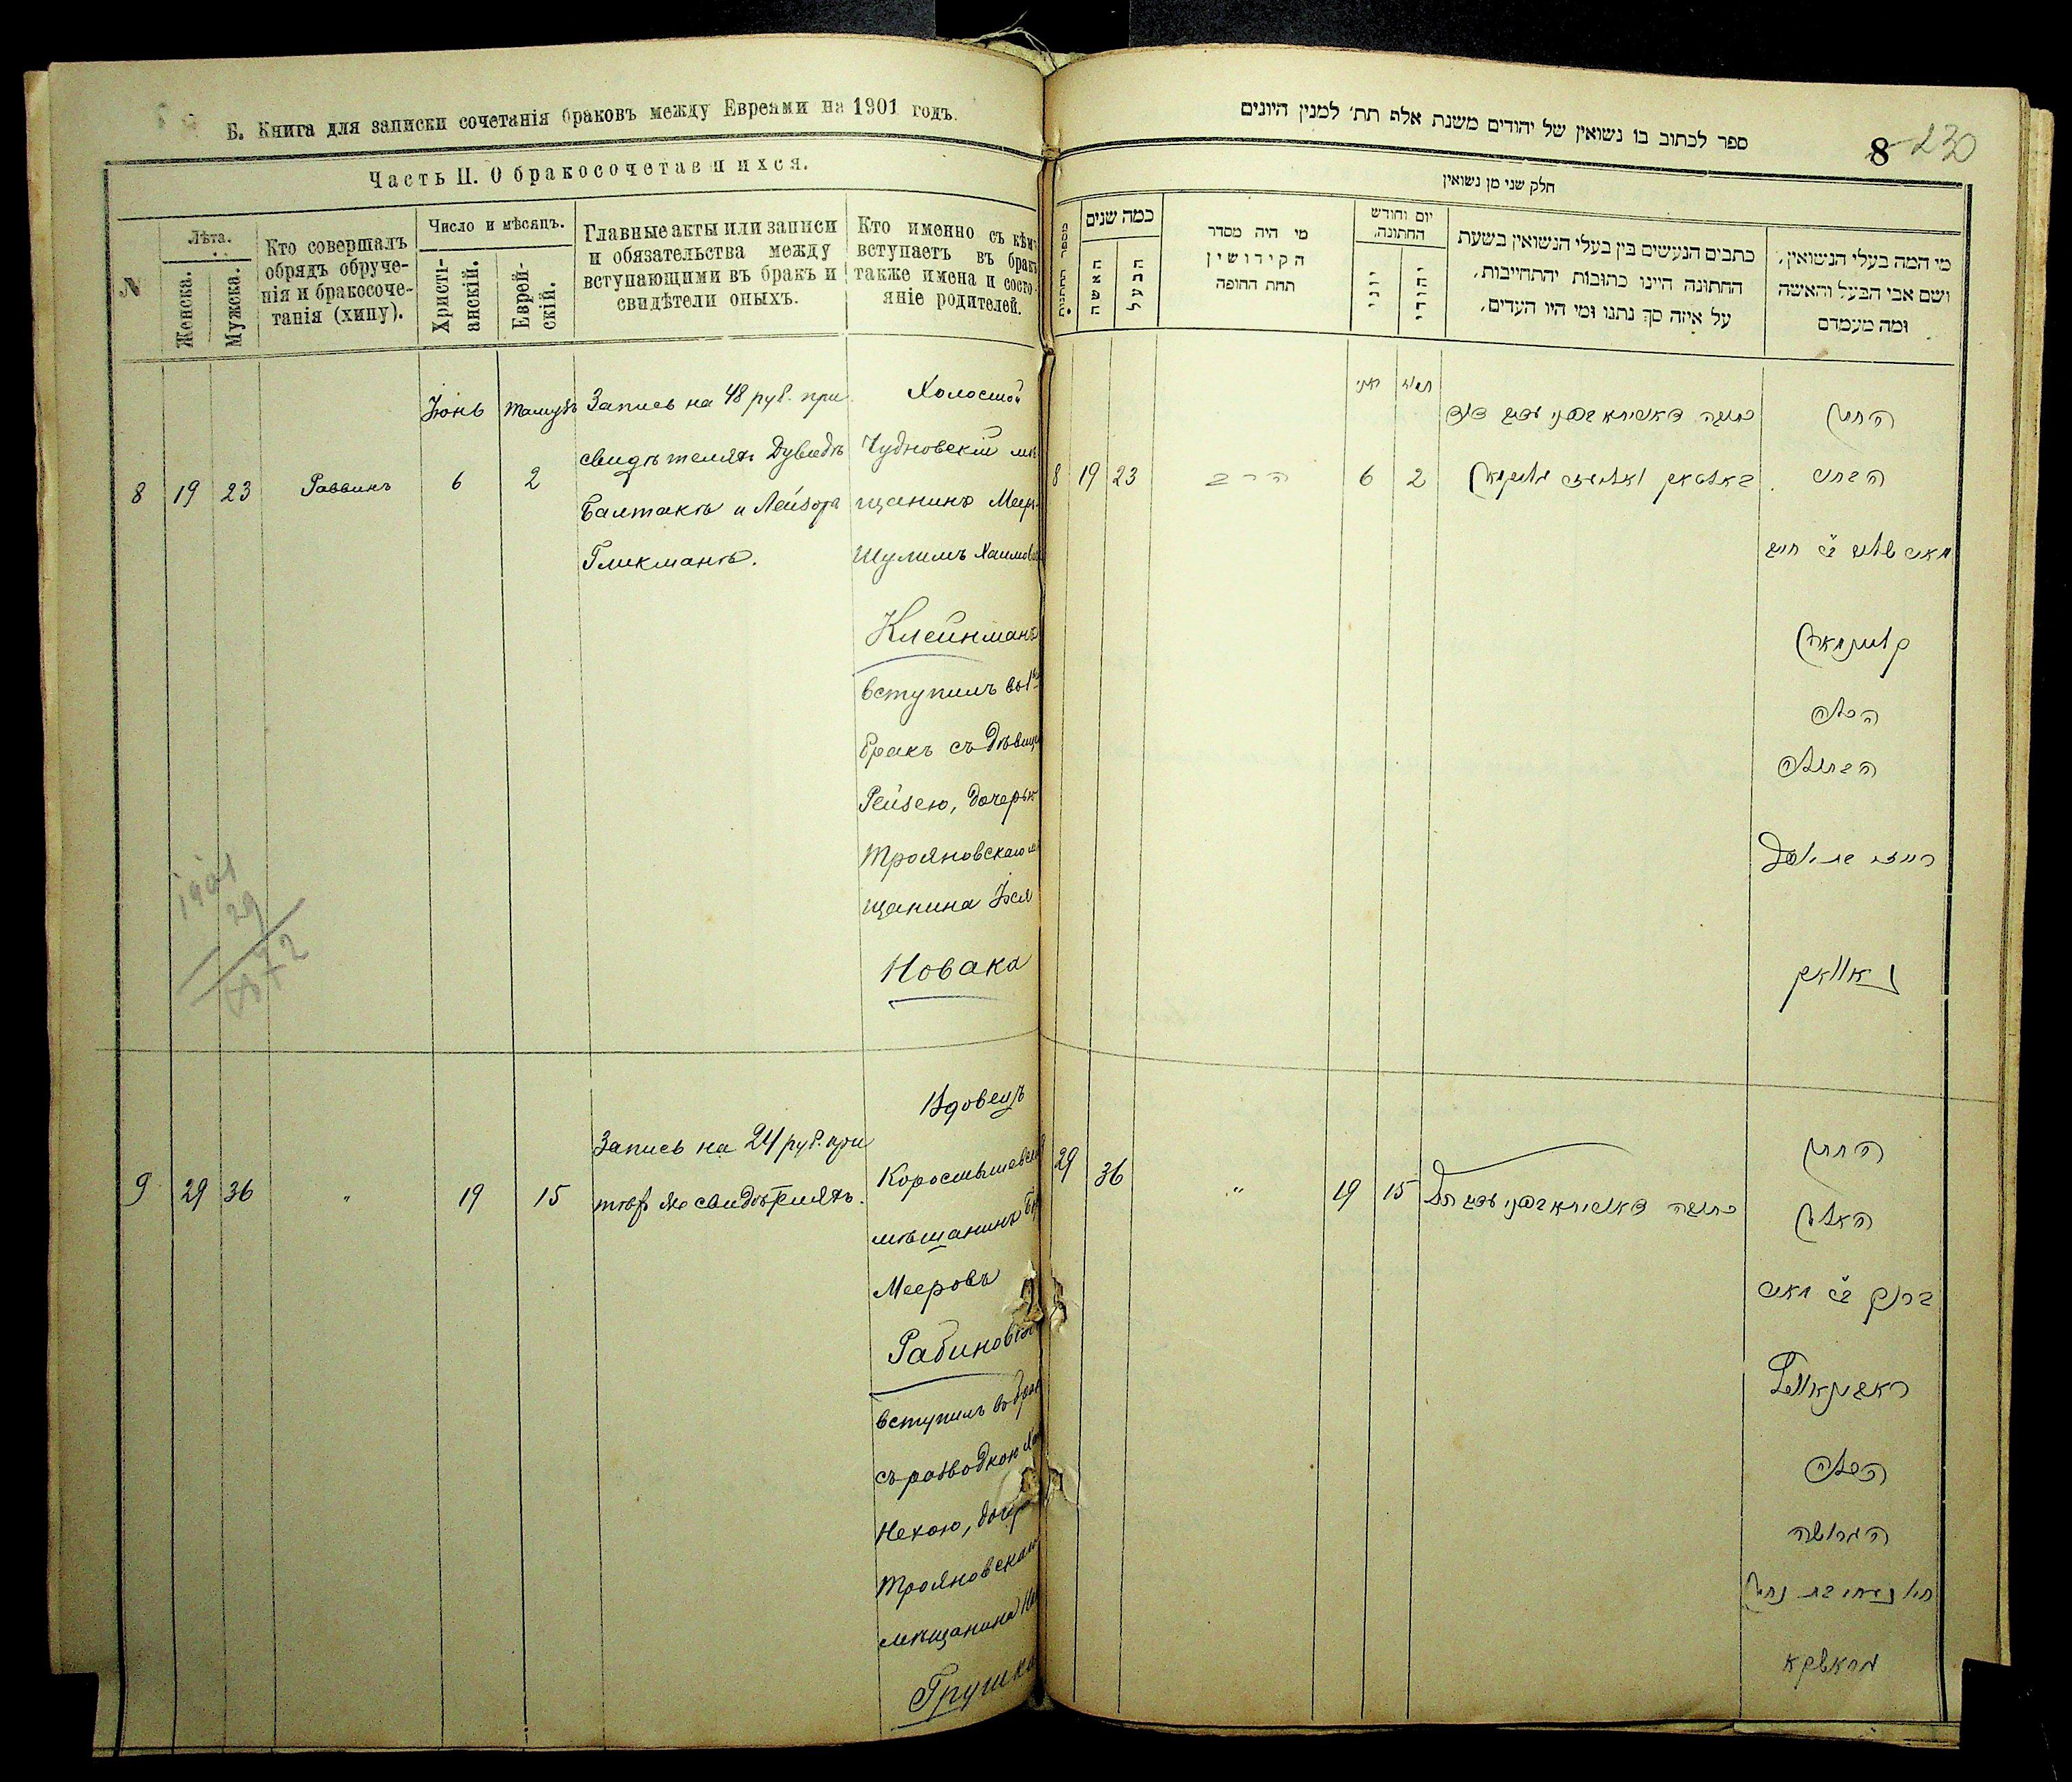 Б. Книга для записки сочетанія браковъ между Евреями на 1901 годъ.
Часть II. О бракосочетавшихся.
N
Лѣта.
Женска.
Мужска.
Кто совершалъ
обрядъ обруче-
нія и бракосоче-
танія (хипу).
Число и мѣсяцъ.
Христі-
анскій.
Еврей-
скій.
Главные акты или записи
и обязательства между
вступающими въ бракъ и
свидѣтели оныхъ.
Кто именно съ кѣмъ
вступаетъ въ бракъ
также имена и состо-
яніе родителей.
8
19
23
Раввинъ
Іюнь
6
Тамузъ
2
Запись на 48 руб. при
свидѣтеляхъ Дувидъ
Балтакъ и Лейзора
Гликманъ.
Холостой
Чудновскій мѣ
щанинъ Меер
Шулимъ Хаимов
Клейнманъ
вступилъ въ 1й
бракъ съ дѣвицей
Рейзею, дочерью
Трояновскаго мѣ
щанина
Новака
1901
29
1872
9
29
36
"
19
15
Запись на 24 руб. при
тѣхъ же свидѣтеляхъ.
Вдовецъ
Коростышевскій
мѣщанинъ
Мееровъ
Рабинови
вступилъ въ бракъ
съ разводкою
Нехою, дочер
Трояновскаго
мѣщанина
Грушк
ספר לכתוב בו נשואין של יהודים משנת אלף תת׳ למנין היונים
8
230
חלק שני מן נשואין
מספר החתונות
כמה שנים
האשה
הבעל
מי היה מסדר
הקידושין
תחת החופה
יום וחודש
החתונה,
יוני
יהודי
כתבים הנעשים בין בעלי הנשואין בשעת
החתונה היינו כתובות יהתחייבות,
על איזה סך נתנו ומי היו העדים,
מי המה בעלי הנשואין,
ושם אבי הבעל והאשה
ומה מעמדם
8
19
23
הרב
יוני
6
תמוז
2
החתן
הבחור
מאיר שלום ב״ר חיים
קליינמאן
הכלה
הבתולה
רייזי בת
נאוואק
29
36
"
19
15
החתן
האלמן
ברוך ב״ר מאיר
ראבינאוויץ
הכלה
הגרושה
חי׳ נעחי בת נחמן
גראושקא